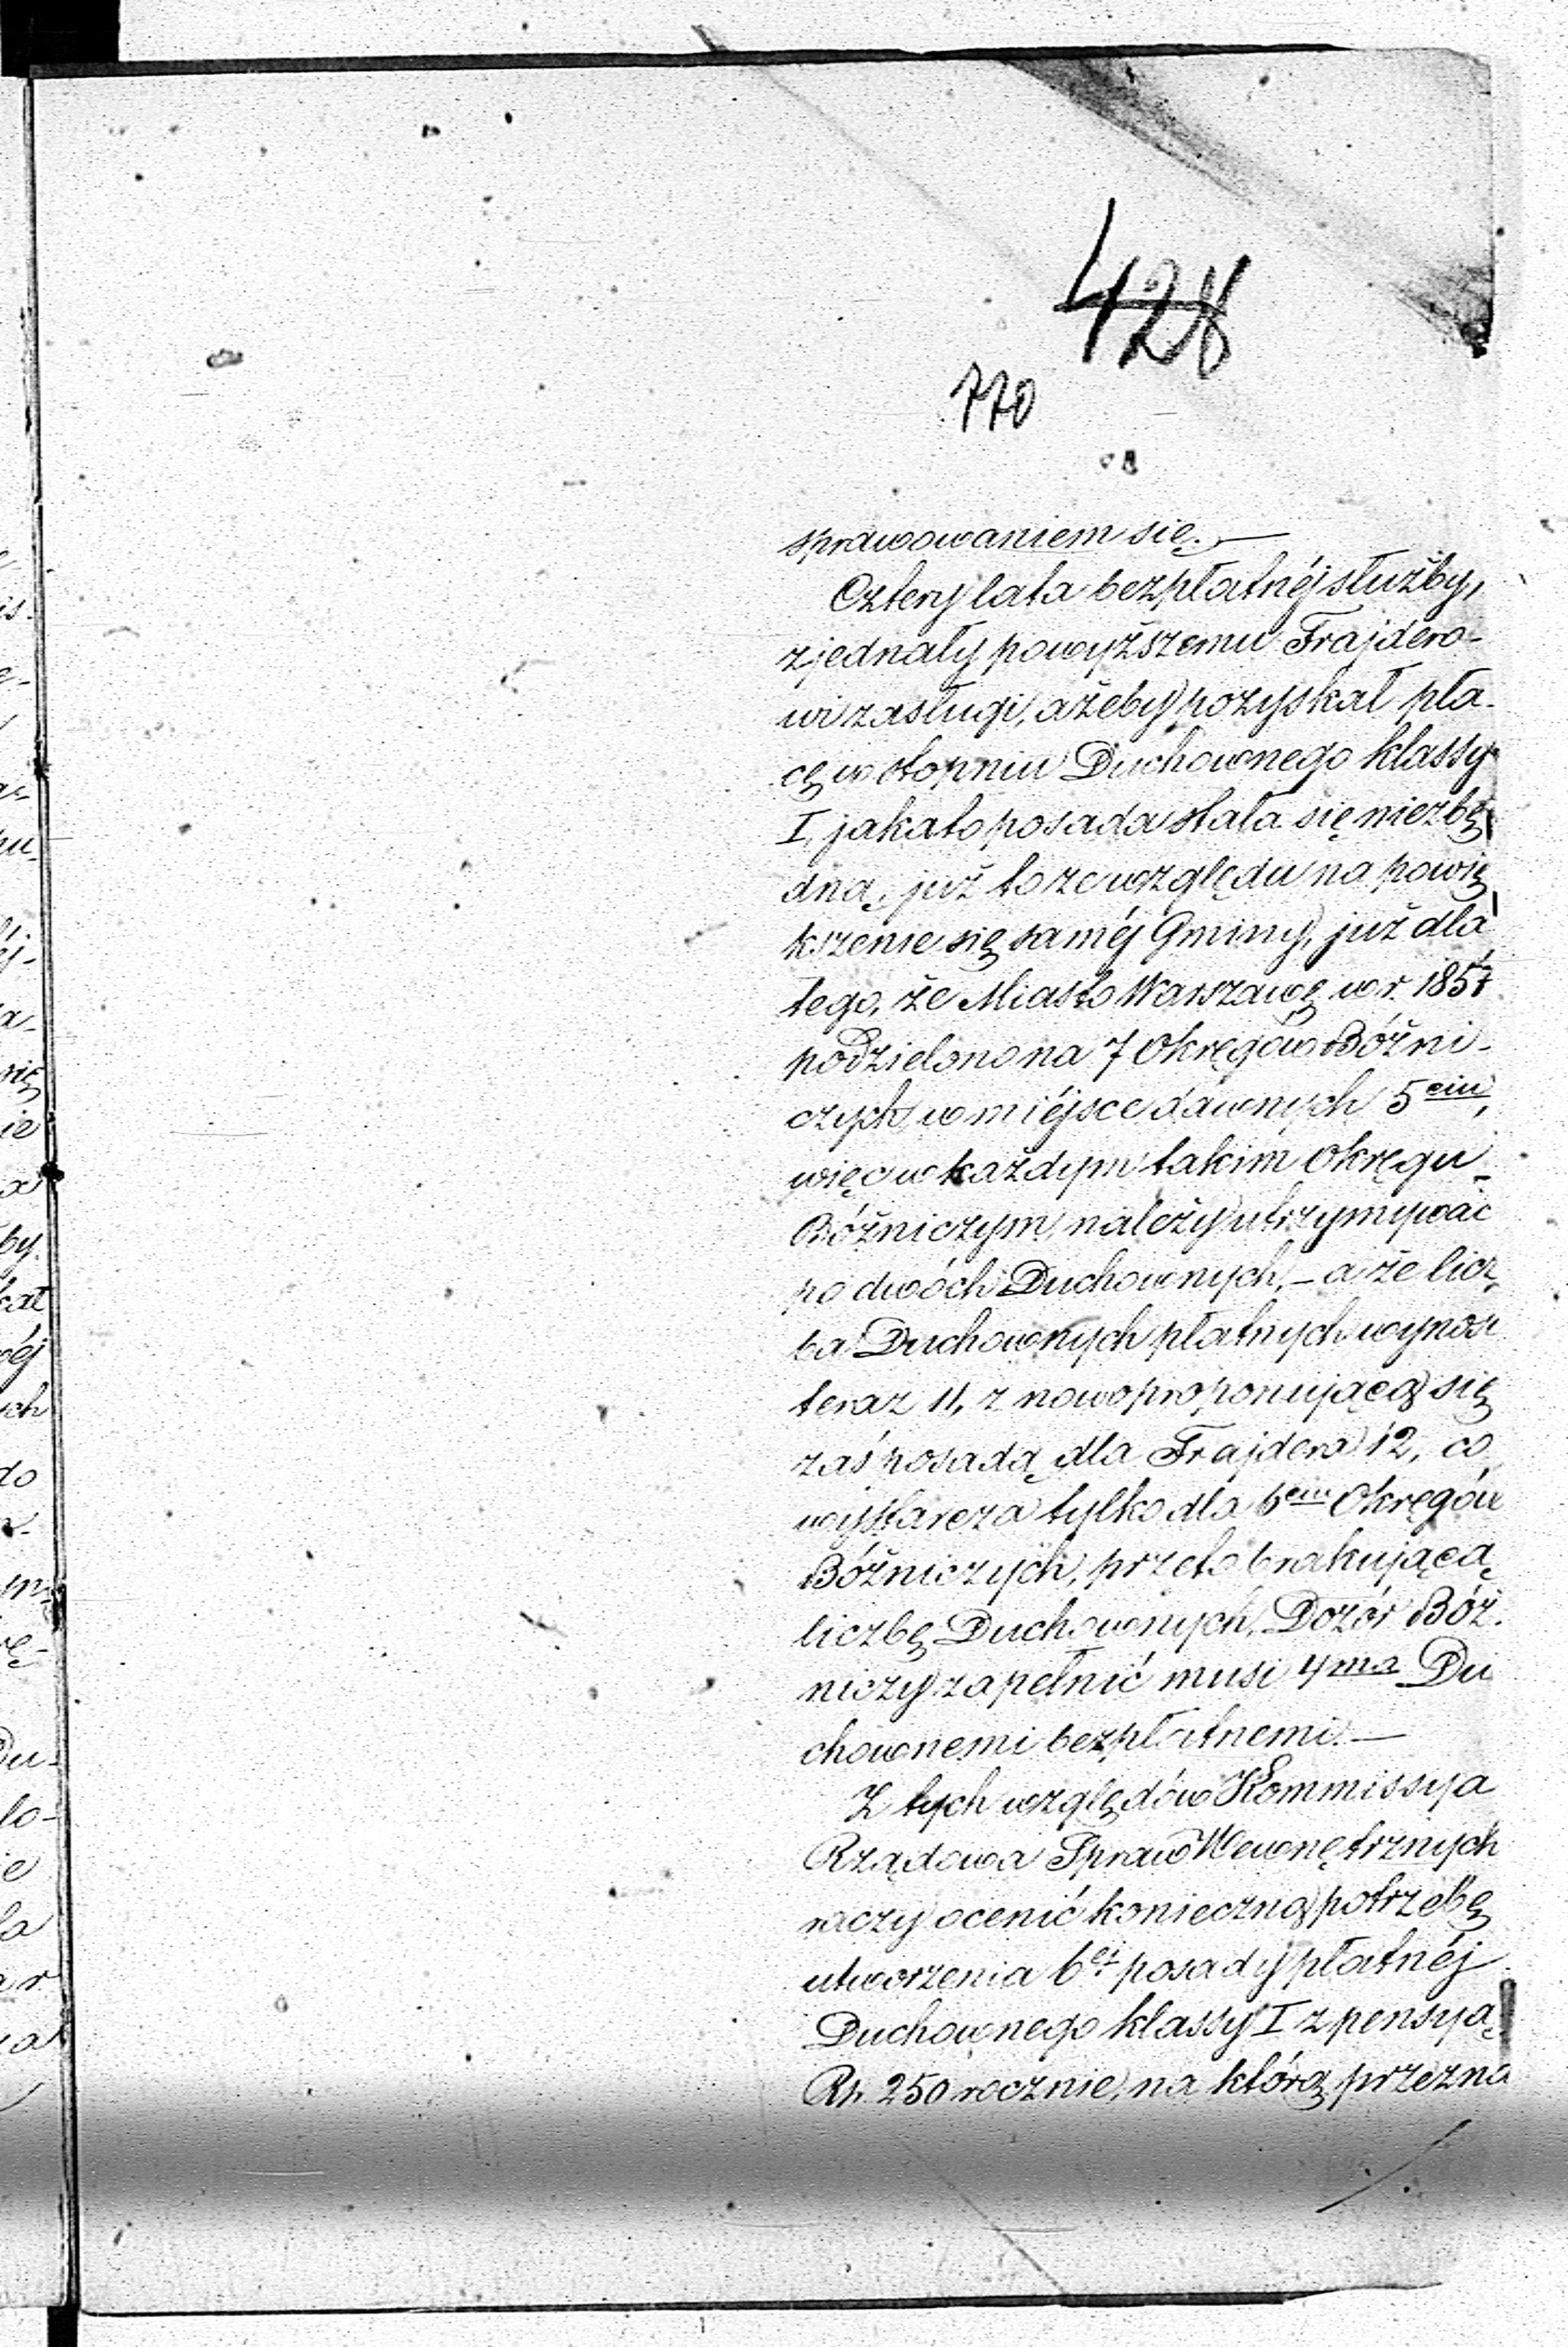 428
770
sprawowaniem się. —
Cztery lata bezpłatnéj służby,
zjednały powyższemu Frajdero-
wi zasługi, ażeby pozyskał pła-
cę w stopniu Duchownego klassy
I, jakato posada stała się niezbę
dną, już to ze względu na powię
kszenie się saméj Gminy, już dla
tego, że Miasto Warszawę w r. 1857
podzielono na 7 Okręgów Bóżni-
czych w miéjsce dawnych 5ciu,
więc w każdym takim Okręgu
Bóżniczym, należy utrzymywać
po dwóch Duchownych, – a że licz
ba Duchownych płatnych wynosi
teraz 11, z nowo proponującą się
zaś posadą dla Frajdera 12, co
wystarcza tylko dla 6ciu Okręgów
Bóżniczych, przeto brakującą
liczbę Duchownych, Dozór Bóż.
niczy zapełnić musi 4ma Du
chownemi bezpłatnemi. —
Z tych względów Kommissya
Rządowa Spraw Wewnętrznych
raczy ocenić konieczną potrzebę
utworzenia 6ej posady płatnéj
Duchownego klassy I z pensyą
Rs. 250 rocznie, na którą przezna